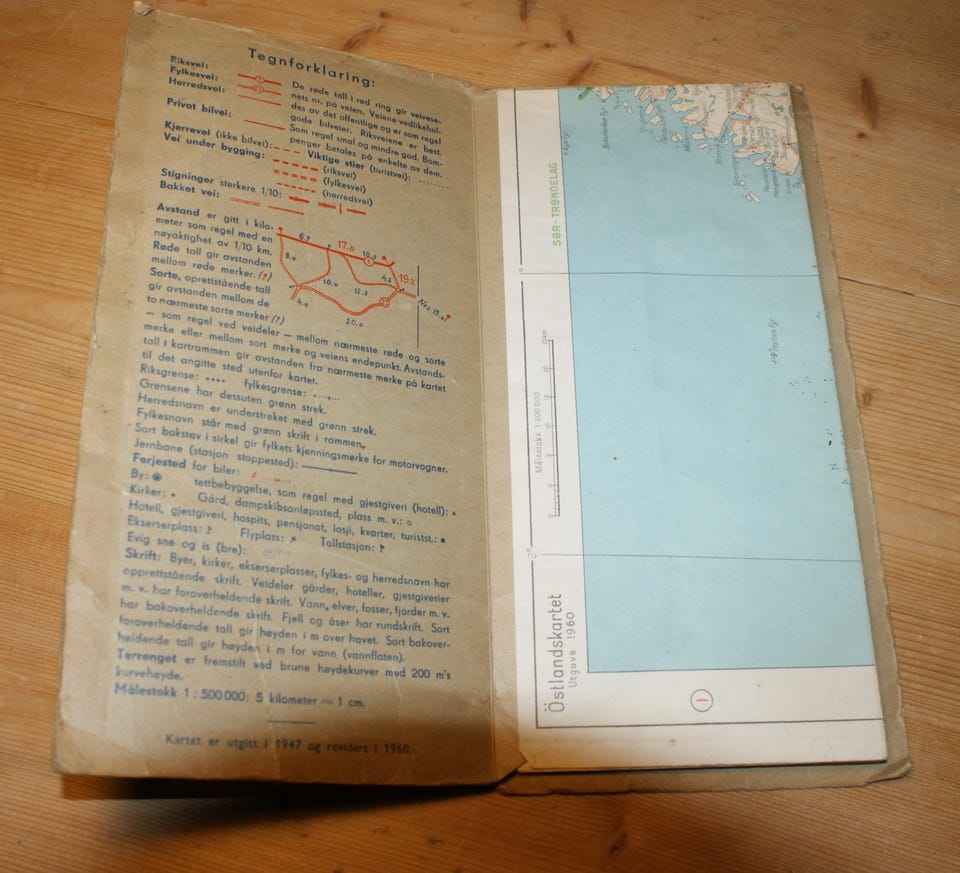 Tegnforklaring:
Riksvei:
Fylkesvei:
Herredsvei:
Privat bilvei:
De røde tall i rød ring gir veivese-
nets nr. på veien. Veiene vedlikehol-
des av det offentlige og er som regel
gode bilveier. Riksveiene er best.
Som regel smal og mindre god. Bom-
penger betales på enkelte av dem.
Kjerrevei (ikke bilvei): Viktige stier (turistvei):
Vei under bygging: (riksvei)
(fylkesvei)
(herredsvei)
Stigninger sterkere 1/10:
Bakket vei:
Avstand er gitt i kilo-
meter som regel med en
nøyaktighet av 1/10 km.
Røde tall gir avstanden
mellom røde merker. (↑)
Sorte, oprettstående tall
gir avstanden mellom de
to nærmeste sorte merker (↑)
6.7
17.0
10.3
1
8.0
10.0
12.3
4.2
19.2
4.0
20.0
— som regel ved veideler — mellom nærmeste røde og sorte
merke eller mellom sort merke og veiens endepunkt. Avstands-
tall i kartrammen gir avstanden fra nærmeste merke på kartet
til det angitte sted utenfor kartet.
Riksgrense: fylkesgrense:
Grensene har dessuten grønn strek.
Herredsnavn er understreket med grønn strek.
Fylkesnavn står med grønn skrift i rammen.
Sort bokstav i sirkel gir fylkets kjenningsmerke for motorvogner.
Jernbane (stasjon stoppested):
Ferjested for biler:
By: tettbebyggelse, som regel med gjestgiveri (hotell):
Kirker: Gård, dampskibsanløpssted, plass m. v.:
Hotell, gjestgiveri, hospits, pensjonat, losji, kvarter, turistst.:
Ekserserplass: Flyplass: Tollstasjon:
Evig sne og is (bre):
Skrift: Byer, kirker, ekserserplasser, fylkes- og herredsnavn har
opprettstående skrift. Veideler gårder, hoteller, gjestgiverier
m. v. har foroverheldende skrift. Vann, elver, fosser, fjorder m. v.
har bakoverheldende skrift. Fjell og åser har rundskrift. Sort
foroverheldende tall gir høyden i m over havet. Sort bakover-
heldende tall gir høyden i m for vann (vannflaten).
Terrenget er fremstilt ved brune høydekurver med 200 m's
kurvehøyde.
Målestokk 1 : 500 000: 5 kilometer = 1 cm.
Kartet er utgitt i 1947 og revidert i 1960.
SØR-TRØNDELAG
Halten fyr
Målestokk 1:500 000
25 km
2°
Östlandskartet
Utgave 1960
1